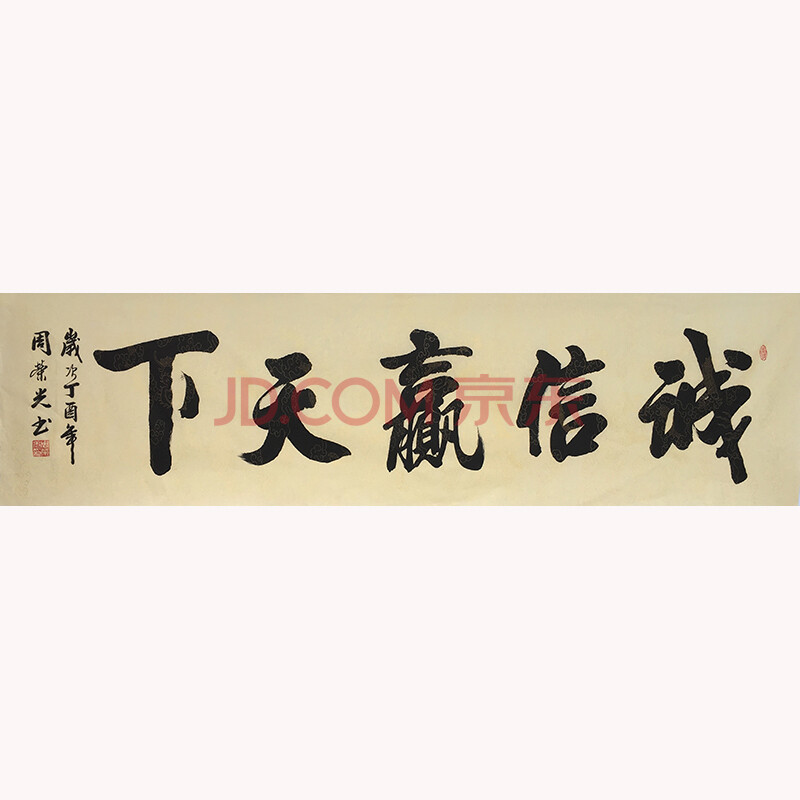 诚信赢天下
歲次丁酉年
周榮光书
JD.COM 京东